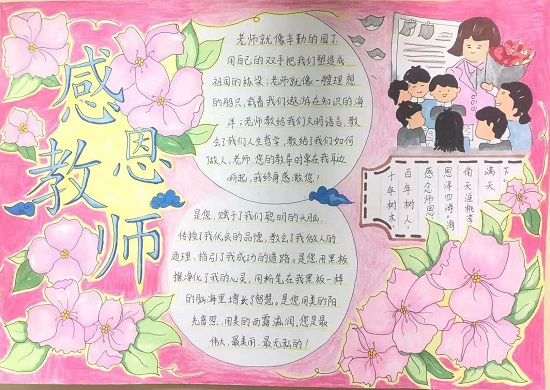 感恩教师
老师就像辛勤的园丁
用自己的双手把我们塑造成
祖国的栋梁；老师就像一艘理想
的船只，载着我们遨游在知识的海
洋；老师教给我们文明语言，教
会了我们人生哲学，教给了我们如何
做人。老师，您的教导的牢在我耳边
响起，我终身感激您！
是您，赋予了我们聪明的头脑，
传授了我优良的品德，教会了我做人的
道理，指引了我成功的道路。是您，用黑板
擦净化了我的心灵，用粉笔在我黑板一样
的脑海里增长了智慧。是您，用美的阳
光普照，用美的雨露滋润，您是最
伟大、最美丽、最无私的！
十年树木，
百年树人，
感念师恩
恩泽四海，海
角天涯桃李
满天
下